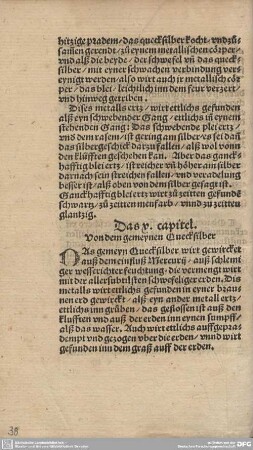 hitzige pradem / das quecksilber kocht / vnd zů
samen gerendt / zů eynem metallischen cörper /
vnd alß die beyde / der schwefel vñ das queck-
silber / mit eyner schwachen verbindung vers
eynigt werden / also wirt auch ir metallisch cör
per / das blei / leichtlich inn dem feur verzert /
vnd hinweg getriben.
Dises metalls ertz / wirt ettlichs gefunden
alß eyn schwebender Gang / ettlichs iñ eynem
stehenden Gang: Das schwebende plei ertz /
vnd dem rasen / ist gering am silber / es sei dañ
das silbergeschick darzů fallen / alß wol vonn
den klüfften geschehen kan. Aber das ganck-
hafftig blei ertz / ist reicher vñ höher am silber
darnach sein streichen fallen / vnd veradelung
besser ist / alß oben von dem silber gesagt ist.
Ganckhafftig bleiertz wirt zů zeitten gefundē
schwartz / zů zeitten menfarb / vnnd zů zeitten
glantzig.
Das v. capitel.
Von dem gemeynen Quecksilber
DAs gemeyn Quecksilber wirt gewircket
auß dem einfluß Mercurij / auß schleimi
ger wesserichter feuchtung / die vermengt wirt
mit der allersubtilsten schwefeliger erden. Dis
metalls wirt ettlichs gefunden in eyner braus
nen erd gewirckt / alß eyn ander metall ertz /
ettlichs inn grůben / das geflossen ist auß den
klufften vnd auß der erden inn eynen sumpff /
alß das wasser. Auch wirt ettlichs außgepra-
dempt vnd gezogen vber die erden / vnnd wirt
gefunden inn dem graß auff der erden.
38